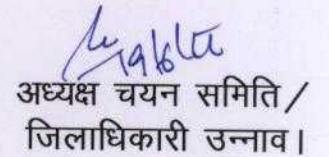 अध्यक्ष चयन समिति/
जिलाधिकारी उन्नाव।